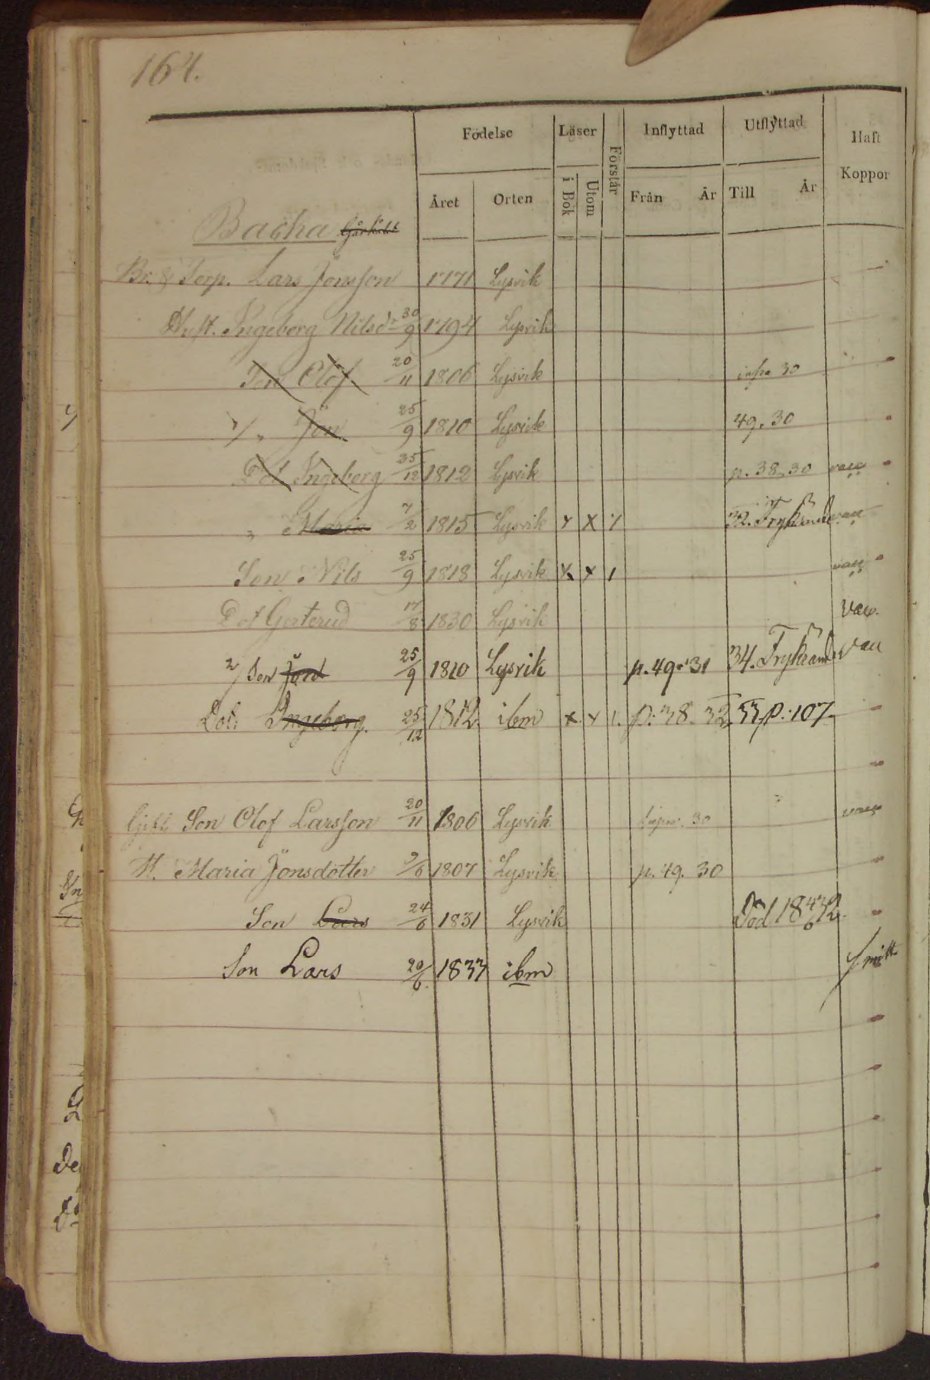 164.
Födelse Läser Förstår Inflyttad Utflyttad Haft Koppor
Året Orten i Bok Utom Från År Till År
Backa
Br. & Torp. Lars Jonsson 1771 Lysvik
Hust. Ingeborg Nilsdr 30/9 1794 Lysvik
Son Olof 20/11 1806 Lysvik infra 30
1/ " Jon 25/9 1810 Lysvik 49. 30
Dot Ingeborg 25/12 1812 Lysvik p. 38. 30 vacc
" Maria 7/2 1815 Lysvik x x / 32. Fryksände vacc
Son Nils 25/9 1818 Lysvik x x / vacc
Dot Gerterud 17/8 1830 Lysvik vac.
2/ Son Jon 25/9 1810 Lysvik p. 49. 31 34. Fryksände vacc
Dot. Ingeborg 25/12 1812 ibm x x / p. 38. 32 33 p. 107
Gift Son Olof Larsson 20/11 1806 Lysvik supra. 30 vacc
H. Maria Jonsdotter 9/6 1807 Lysvik p. 49. 30
Son Lars 24/6 1831 Lysvik Död 18 32
Son Lars 20/6 1833 ibm